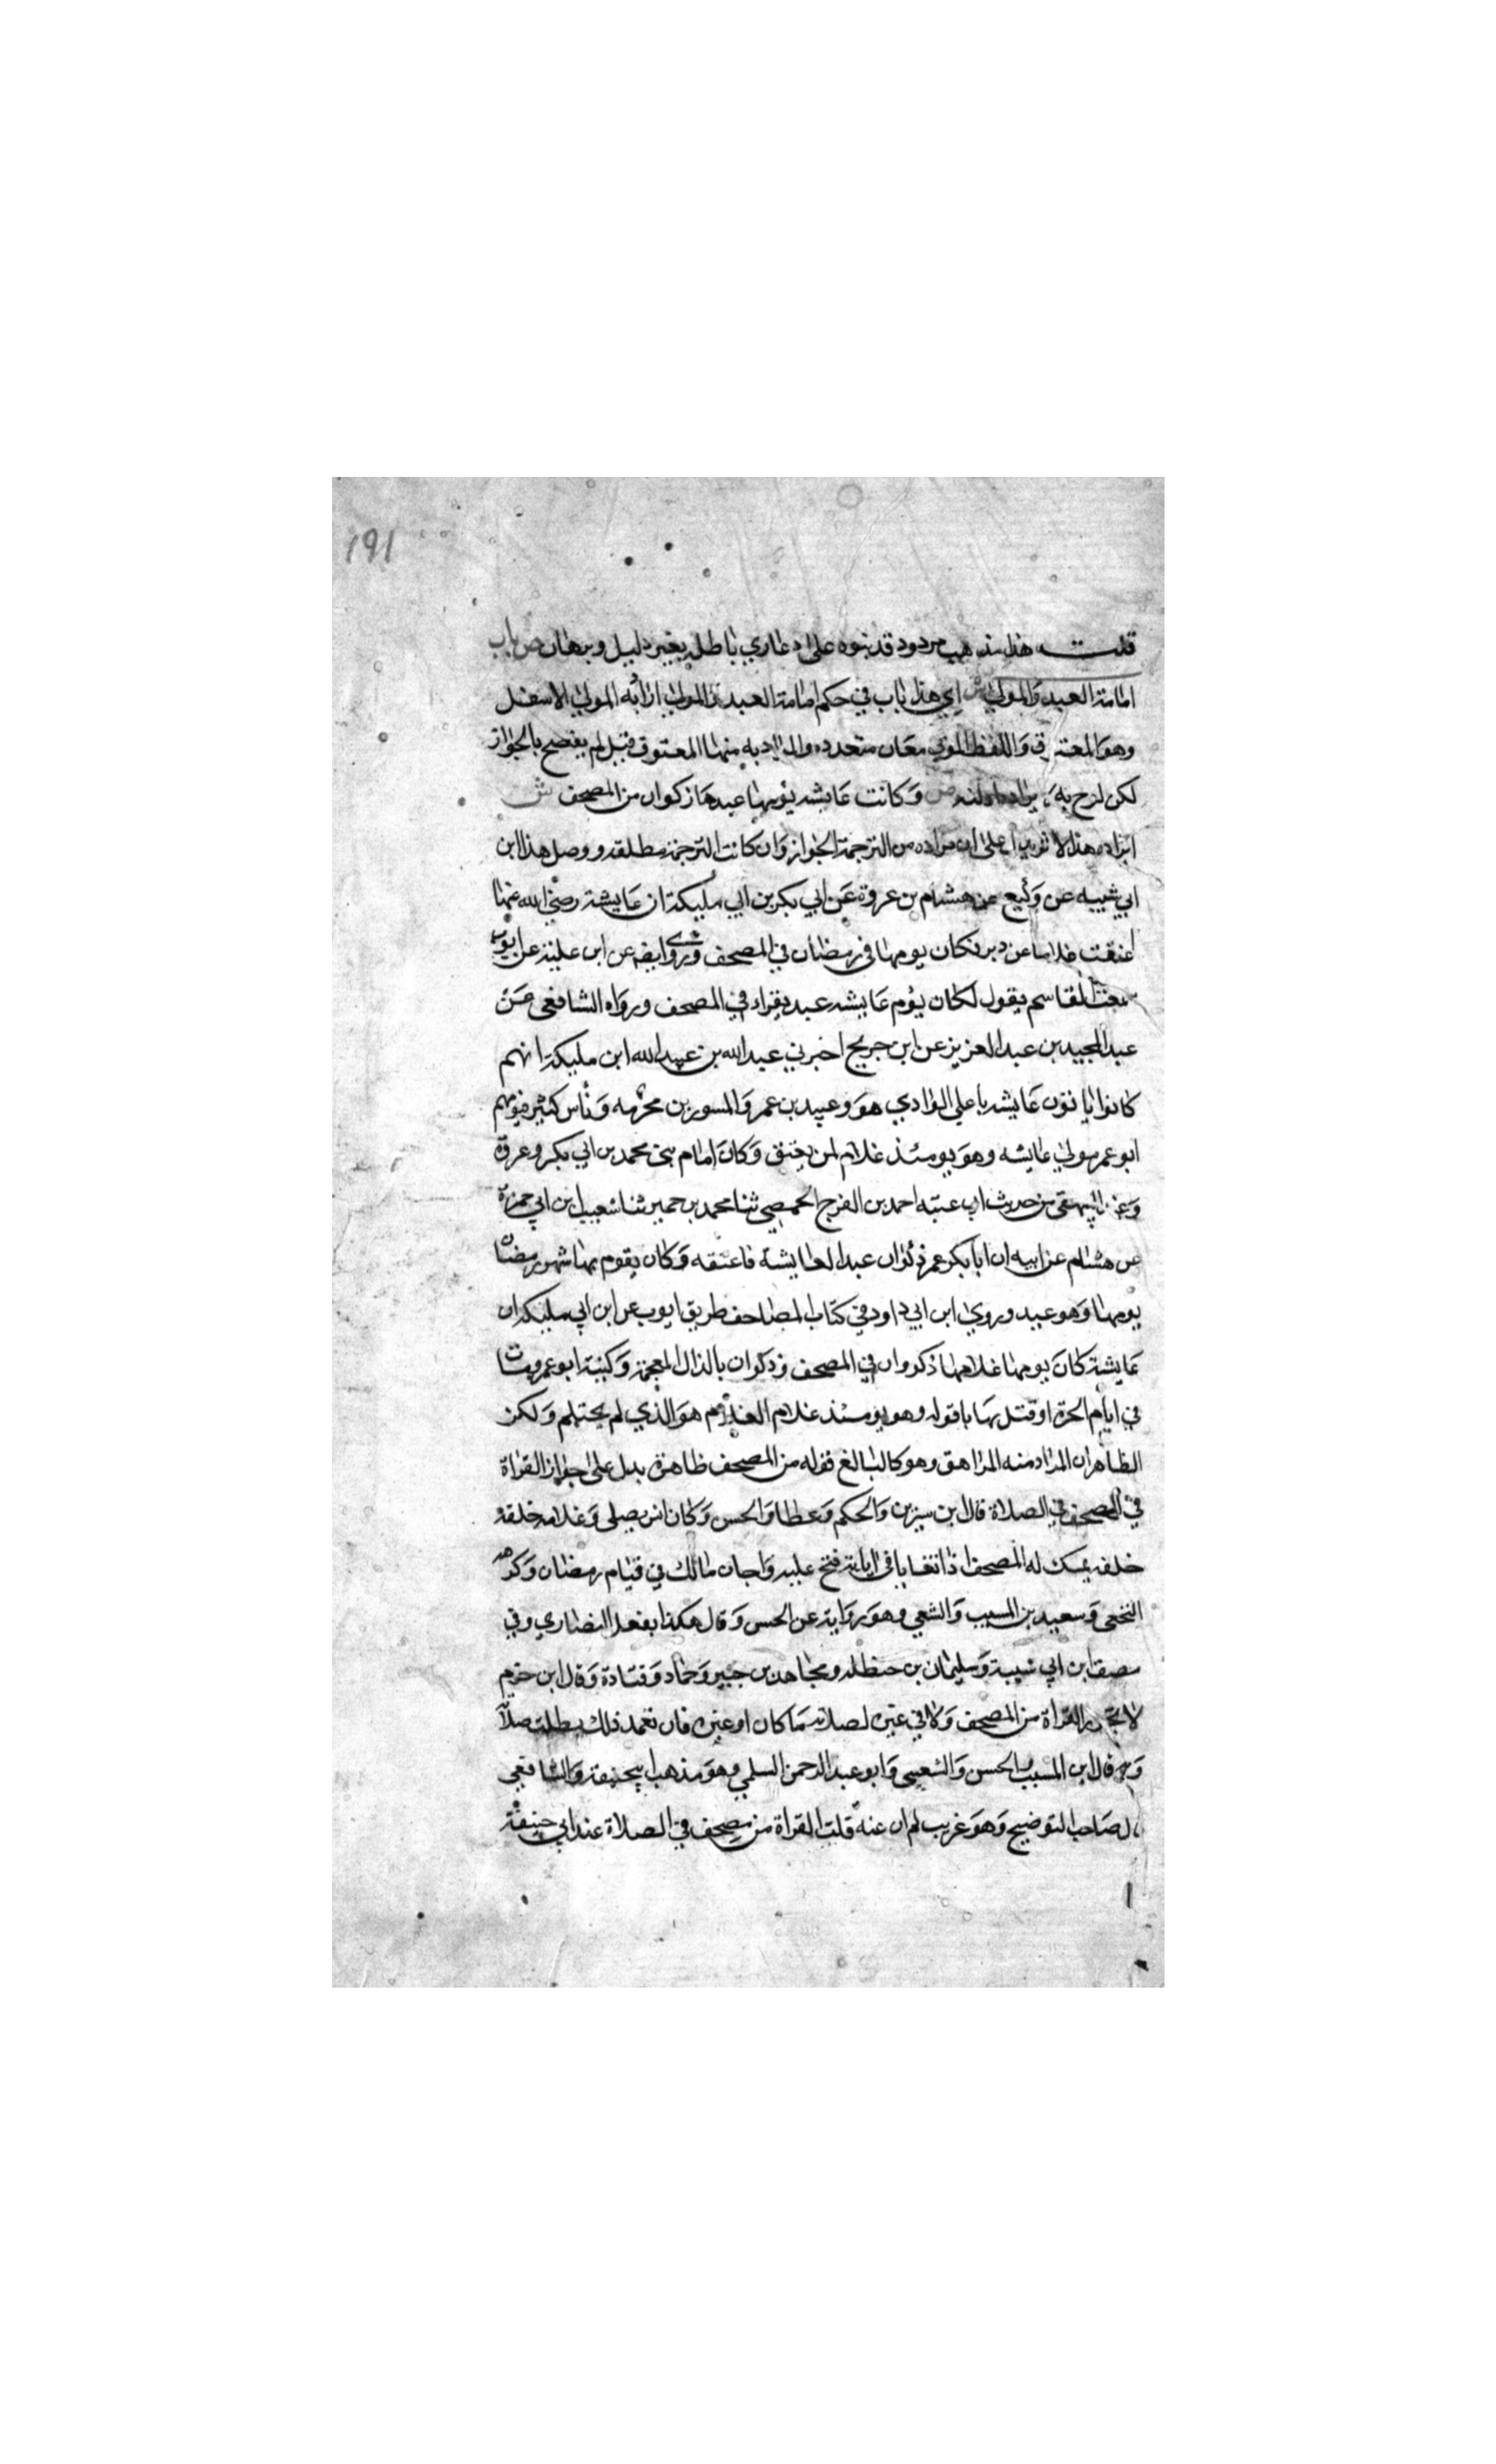 ١٩١
قلت هذا مذهب مردود قد بنوه على دعاوي باطلة بغير دليل وبرهان ص باب
امامة العبد والمولى ش اي هذا باب في حكم امامة العبد والمولى اراد به المولى الاسفل
وهو المعتوق واللفظ المولى معان متعدده والمراد به منها المعتوق قيل لم يفصح بالجواز
لكن لوح به ص وكانت عايشه يؤمها عبدها زكوان من المصحف ش
ايراده هذا الاثر يدل على ان مراده من الترجمة الجواز وان كانت الترجمة مطلقه ووصل هذا ابن
ابي شيبه عن وكيع عن هشام بن عروة عن ابي بكر بن ابي مليكة ان عايشة رضي الله عنها
اعتقت غلاما عن دبر فكان يومها في رمضان في المصحف وروى ايضه عن ابن علية عن ايوب
سمعت القاسم يقول لكان يؤم عايشه عبد يقراء في المصحف ورواه الشافعى عن
عبد المجيد بن عبد العزيز عن ابن جريج اخبرني عبد الله بن عبيد الله ابن مليكة انهم
كانوا ياتون عايشه باعلي الوادي هو وعبيد بن عمر والمسور بن مخرمه وناس كثير فيومهم
ابو عمر مولي عايشه وهو يومئذ غلام لمن يعتق وكان امام بني محمد بن ابي بكر وعروة
وعند البيهقي من حديث ابي عتبه احمد بن الفرج الحمصي ثنا محمد بن حمير ثنا شعيب ابن ابي حمزة
عن هشام عن ابيه ان ابا بكر عمر ذكوان عبدا لعايشة فاعتقه وكان يقوم بها شهر رمضان
يومها وهو عبد وروي ابن ابي داود في كتاب المصاحف طريق ايوب عن ابن ابي مليكه ان
عايشة كان يومها غلامها ذكروان في المصحف وذكوان بالذال المعجمة وكنيته ابو عمرو مات
في ايام الحرة او قتل بها باقوله وهو يومئذ غلام الغلام هو الذي لم يحتلم ولكن
الظاهر ان المراد منه المراهق وهو كالبالغ قوله من المصحف ظاهرة يدل على جواز القراة
في المصحف في الصلاة قال ابن سيرين والحكم وعطا والحسن وكان انس يصلي وغلامه خلفه
خلفه يمسك له المصحف اذا تعايا في اياية فتح عليه واجان مالك في قيام رمضان وكرهه
النخعي وسعيد بن المسيب والشعبي وهو رواية عن الحسن وقال هكذا يفعل النصاري وفي
مصنف ابن ابي شيبة وسليمان بن حنظله ومجاهد بن جبير وحماد وقتادة وقال ابن حزم
لا تجوز القراة من المصحف ولا في غيره لصلاته ما كان او غيره فان تعمد ذلك بطلت صلاته
وبه قال ابن المسيب والحسن والشعبي وابو عبد الرحمن السلمي وهو مذهب ابي حنيفة والشافعي
لصاحب التوضيح وهو غريب لم ان عنه قلت القراة من مصحف في الصلاة عند ابي حنيفة